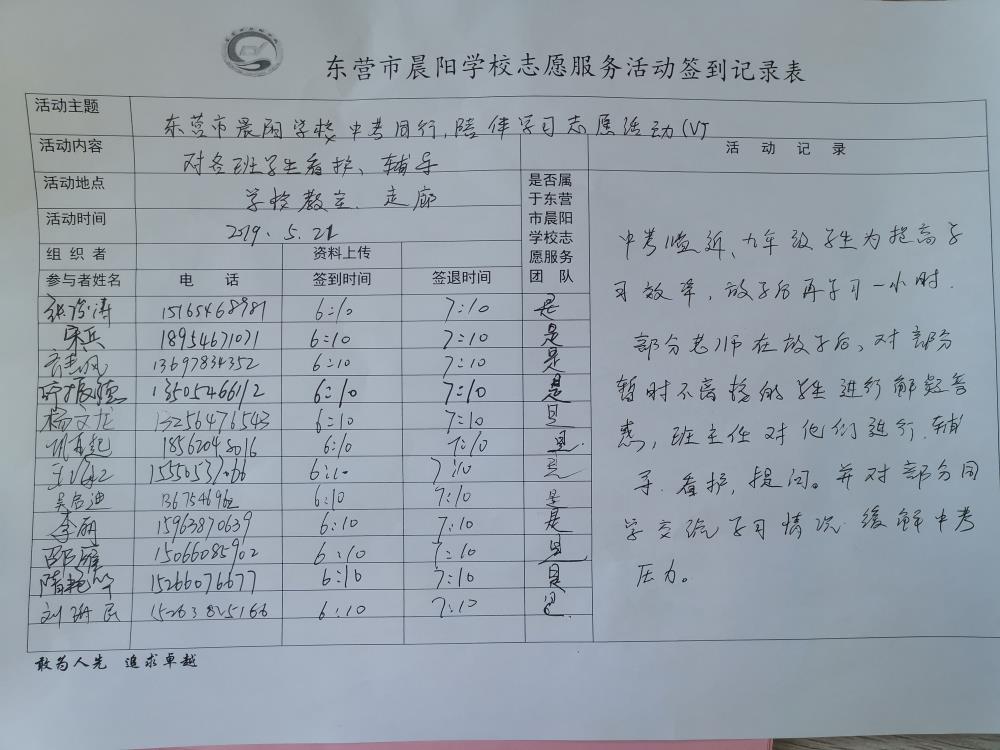 东营市晨阳学校志愿服务活动签到记录表
活动主题 东营市晨阳学校中考同行,陪伴学习志愿活动(V)
活动内容 对各班学生看护、辅导
活动地点 学校教室、走廊
活动时间 2019.5.21
组织者 资料上传
参与者姓名 电话 签到时间 签退时间
是否属
于东营
市晨阳
学校志
愿服务
团队
15165468981 6:10 7:10 是
宋兵 18954671071 6:10 7:10 是
13697834352 6:10 7:10 是
13505466112 6:10 7:10 是
杨文龙 13256476543 6:10 7:10 是
18562048016 6:10 7:10 是
6:10 7:10 是
吴启迪 6:10 7:10 是
李丽 15963870639 6:10 7:10 是
邵雄 15066085902 6:10 7:10 是
隋艳华 15266076677 6:10 7:10 是
刘珊民 15263825166 6:10 7:10 是
活动记录
中考临近、九年级学生为提高学
习效率,放学后再学习一小时.
部分老师在放学后,对部分
暂时不离校的学生进行解疑答
惑,班主任对他们进行辅
导.看护,提问。并对部分同
学交流学习情况.缓解中考
压力。
敢为人先 追求卓越